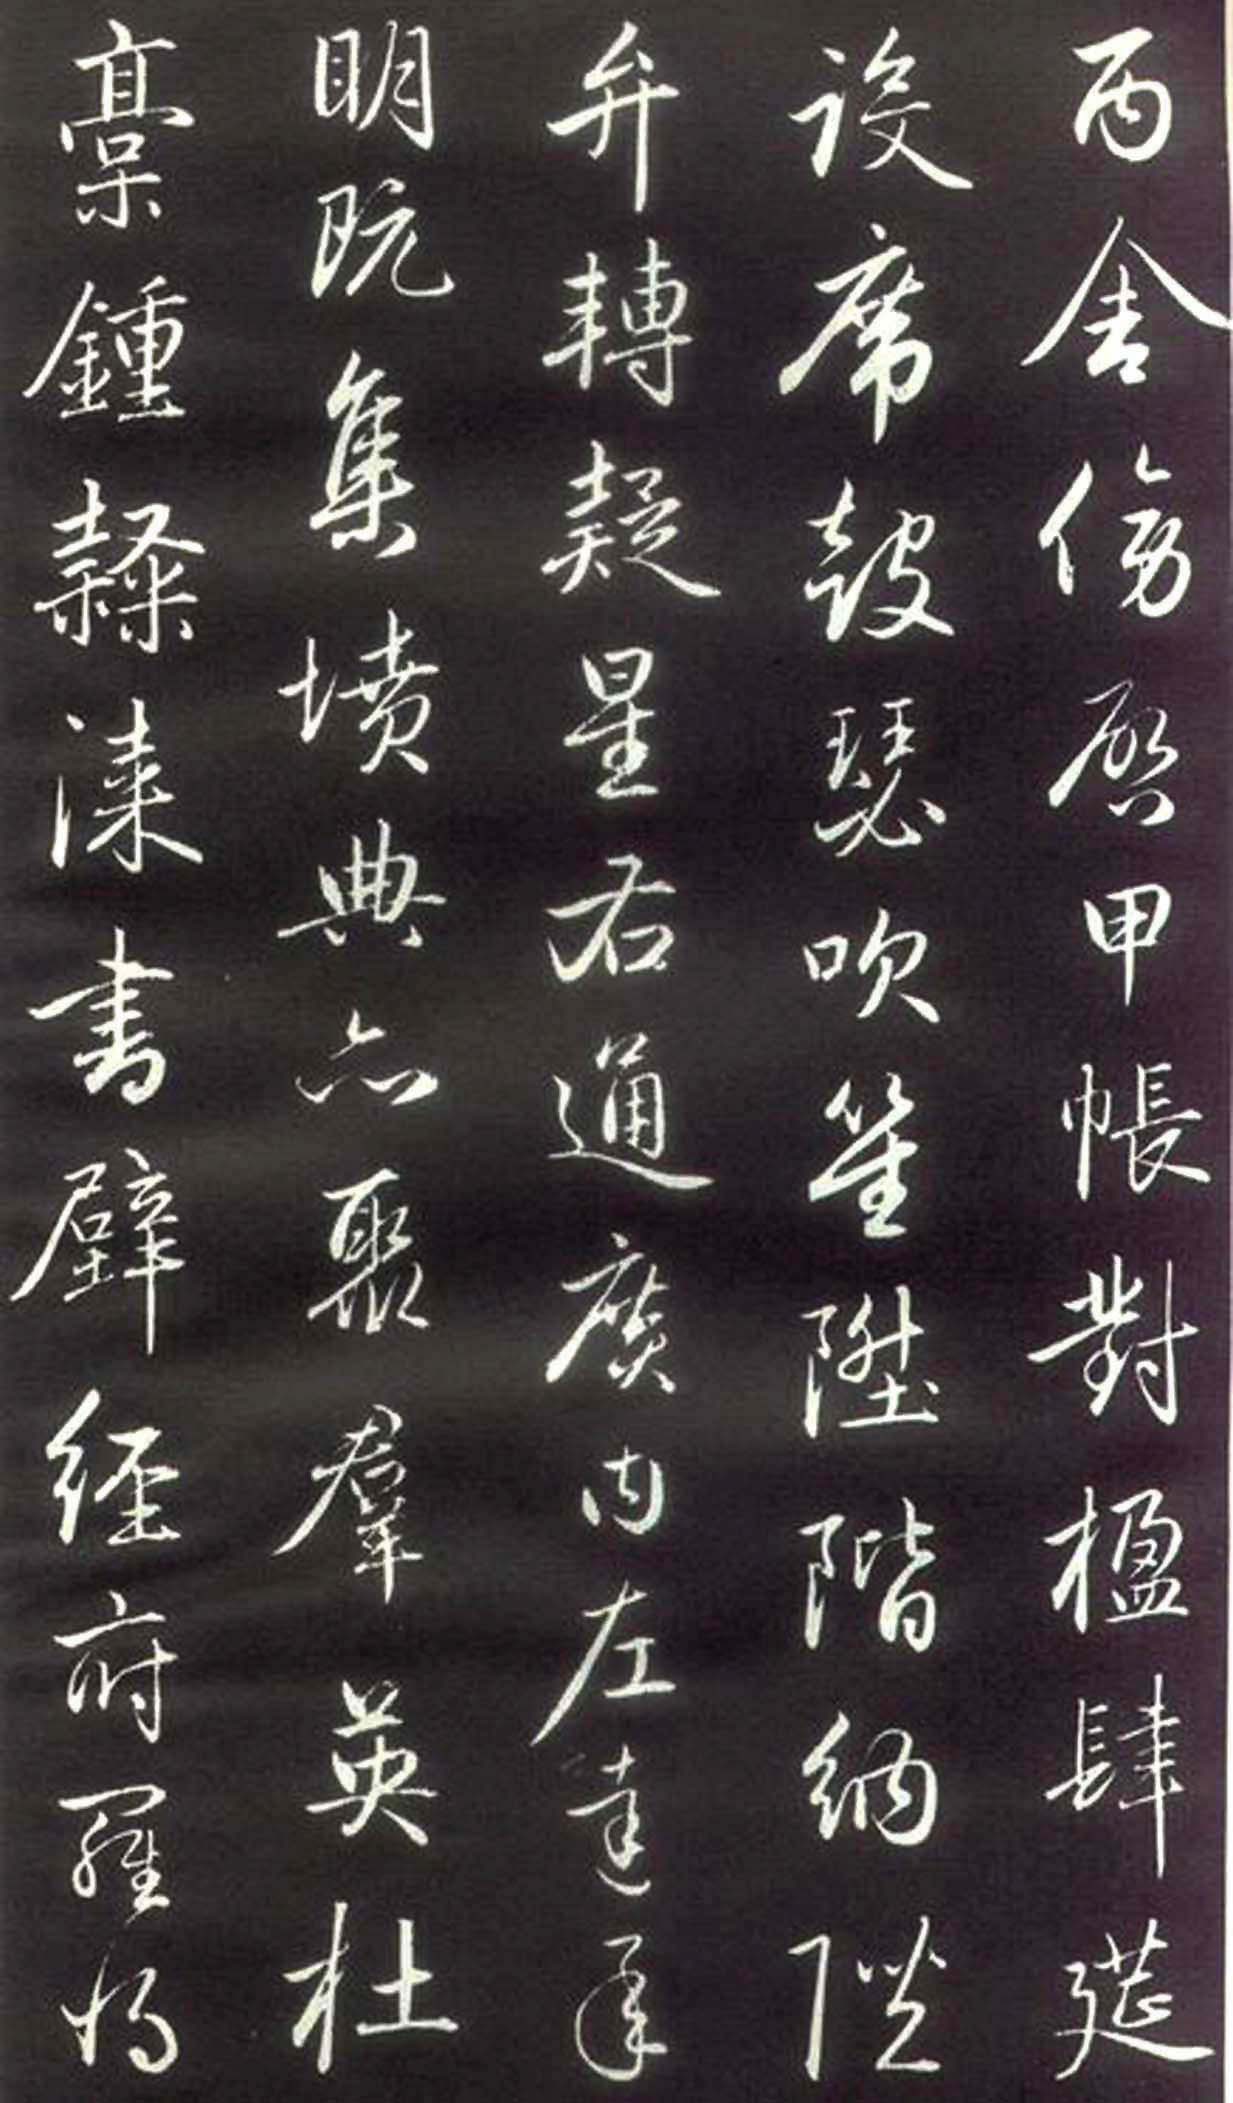 丙舍傍啟甲帳對楹肆筵
設席鼓瑟吹笙陞階納陛
弁轉疑星右通廣內左達承
明既集墳典亦聚群英杜
稾鍾隸漆書壁經府羅將